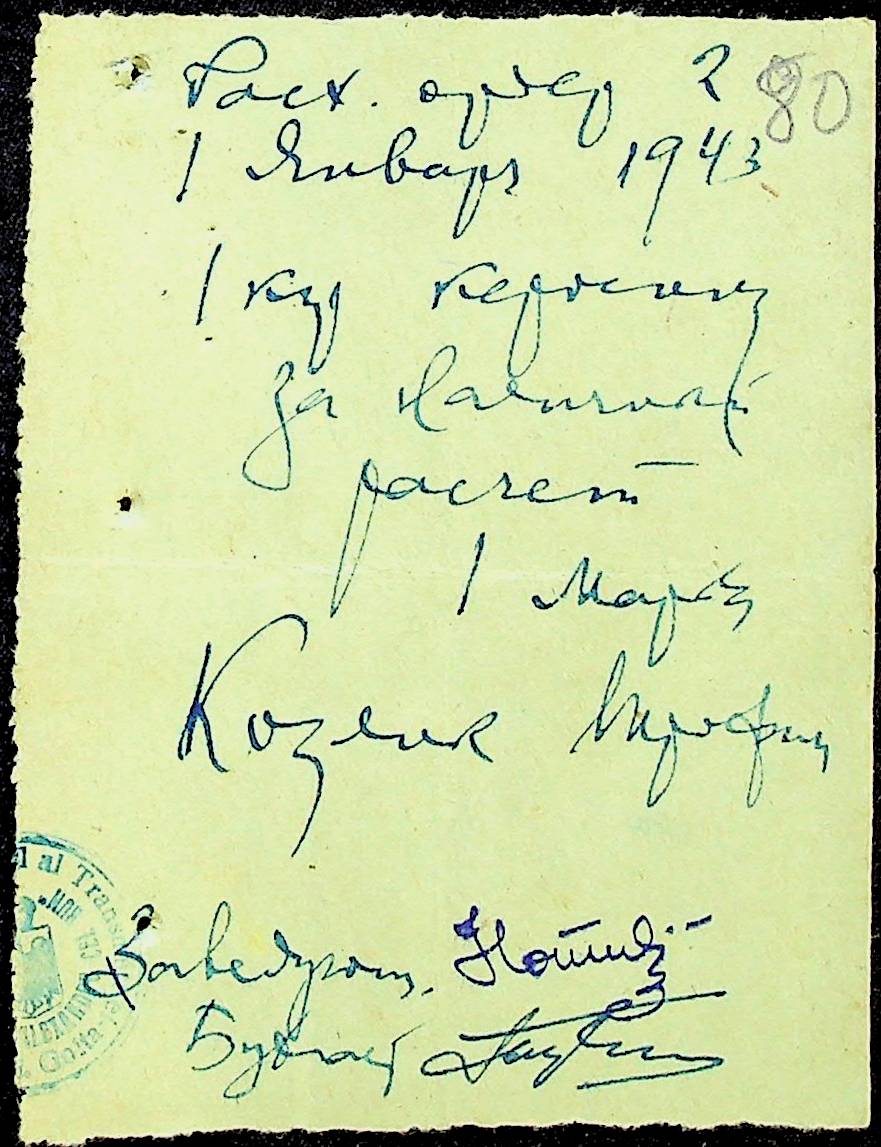 Расх. ордер 2
80
1 Января 1943
1 кгр керосину
за наличный
расчет
1 Марку
Козлик Трофим
Заведующ.
Бухгалт
l al Trans